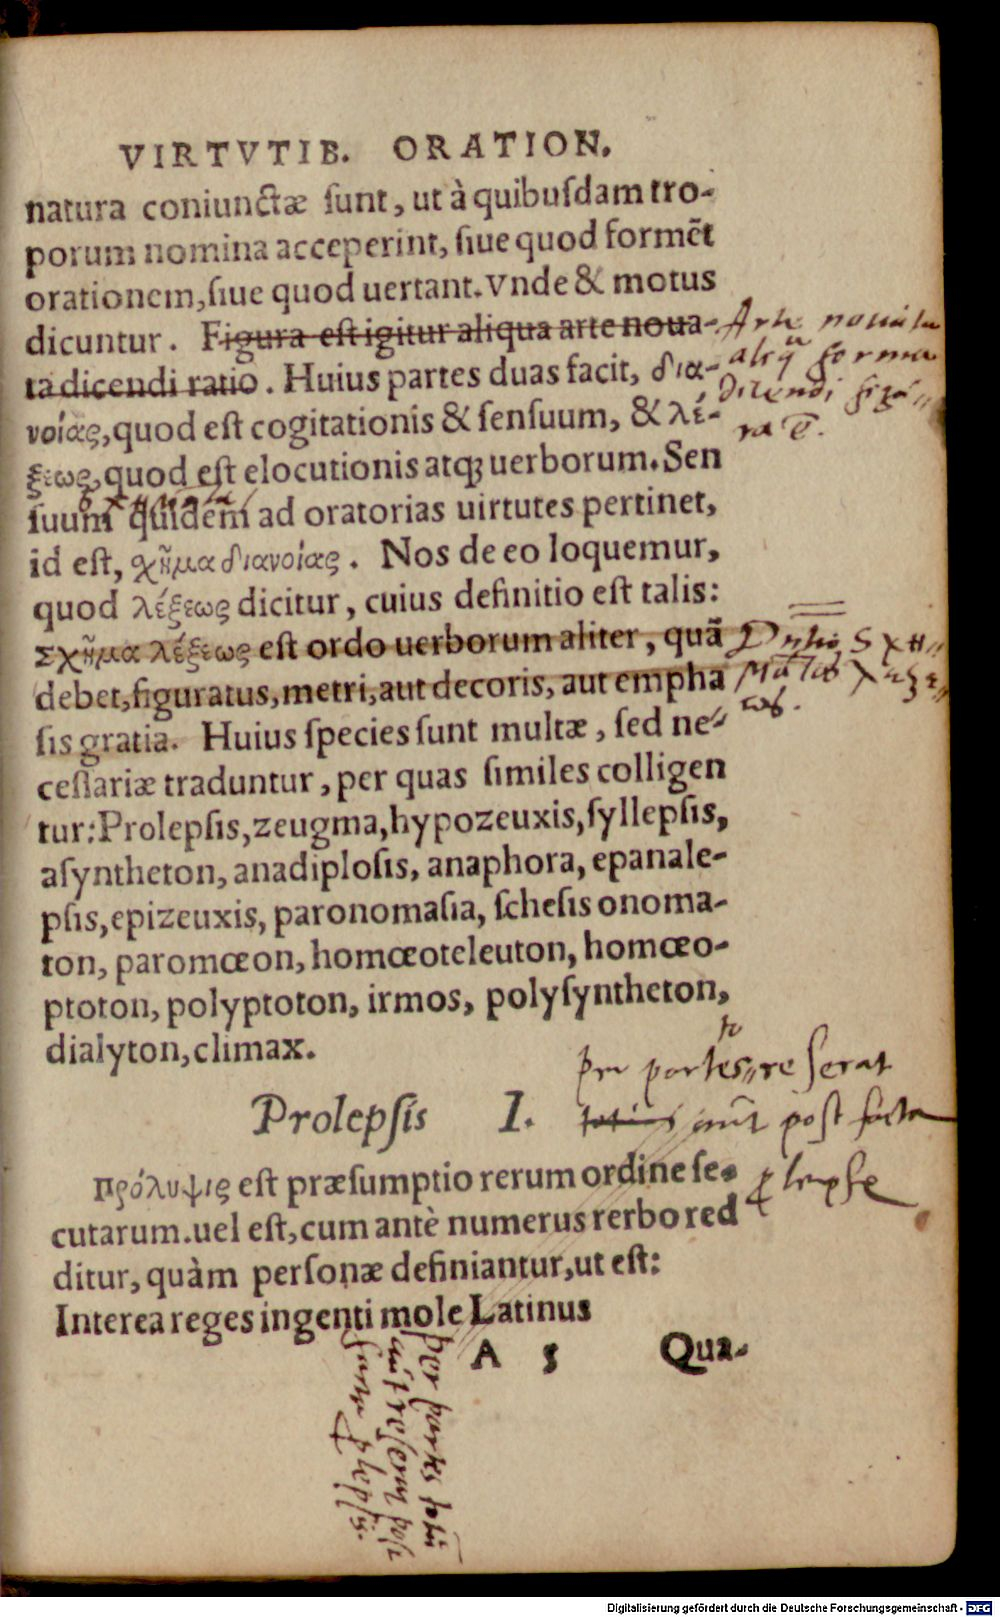 VIRTVTIB. ORATION.
natura coniunctæ ſunt, ut à quibuſdam tro-
porum nomina acceperint, ſiue quod formẽt
orationem, ſiue quod uertant. Vnde & motus
dicuntur. Figura eſt igitur aliqua arte noua-
ta dicendi ratio. Huius partes duas facit, δια-
νοίας, quod eſt cogitationis & ſenſuum, & λέ-
ξεως, quod eſt elocutionis atqꝫ uerborum. Sen
ſuum quidem ad oratorias uirtutes pertinet,
id eſt, χῆμα διανοίας. Nos de eo loquemur,
quod λέξεως dicitur, cuius definitio eſt talis:
Σχῆμα λέξεως eſt ordo uerborum aliter, quã
debet, figuratus, metri, aut decoris, aut empha
ſis gratia. Huius ſpecies ſunt multæ, ſed ne-
ceſſariæ traduntur, per quas ſimiles colligen
tur: Prolepſis, zeugma, hypozeuxis, ſyllepſis,
aſyntheton, anadiploſis, anaphora, epanale-
pſis, epizeuxis, paronomaſia, ſcheſis onoma-
ton, paromœon, homœoteleuton, homœo-
ptoton, polyptoton, irmos, polyſyntheton,
dialyton, climax.
Prolepſis I.
Πρόλυψις eſt præſumptio rerum ordine ſe-
cutarum. uel eſt, cum antè numerus rerbo red
ditur, quàm perſonæ definiantur, ut eſt:
Interea reges ingenti mole Latinus
A 5 Qua-
Arte
forma
dicendi figu
ra
post facta
per partes
Digitalisierung gefördert durch die Deutsche Forschungsgemeinschaft - DFG